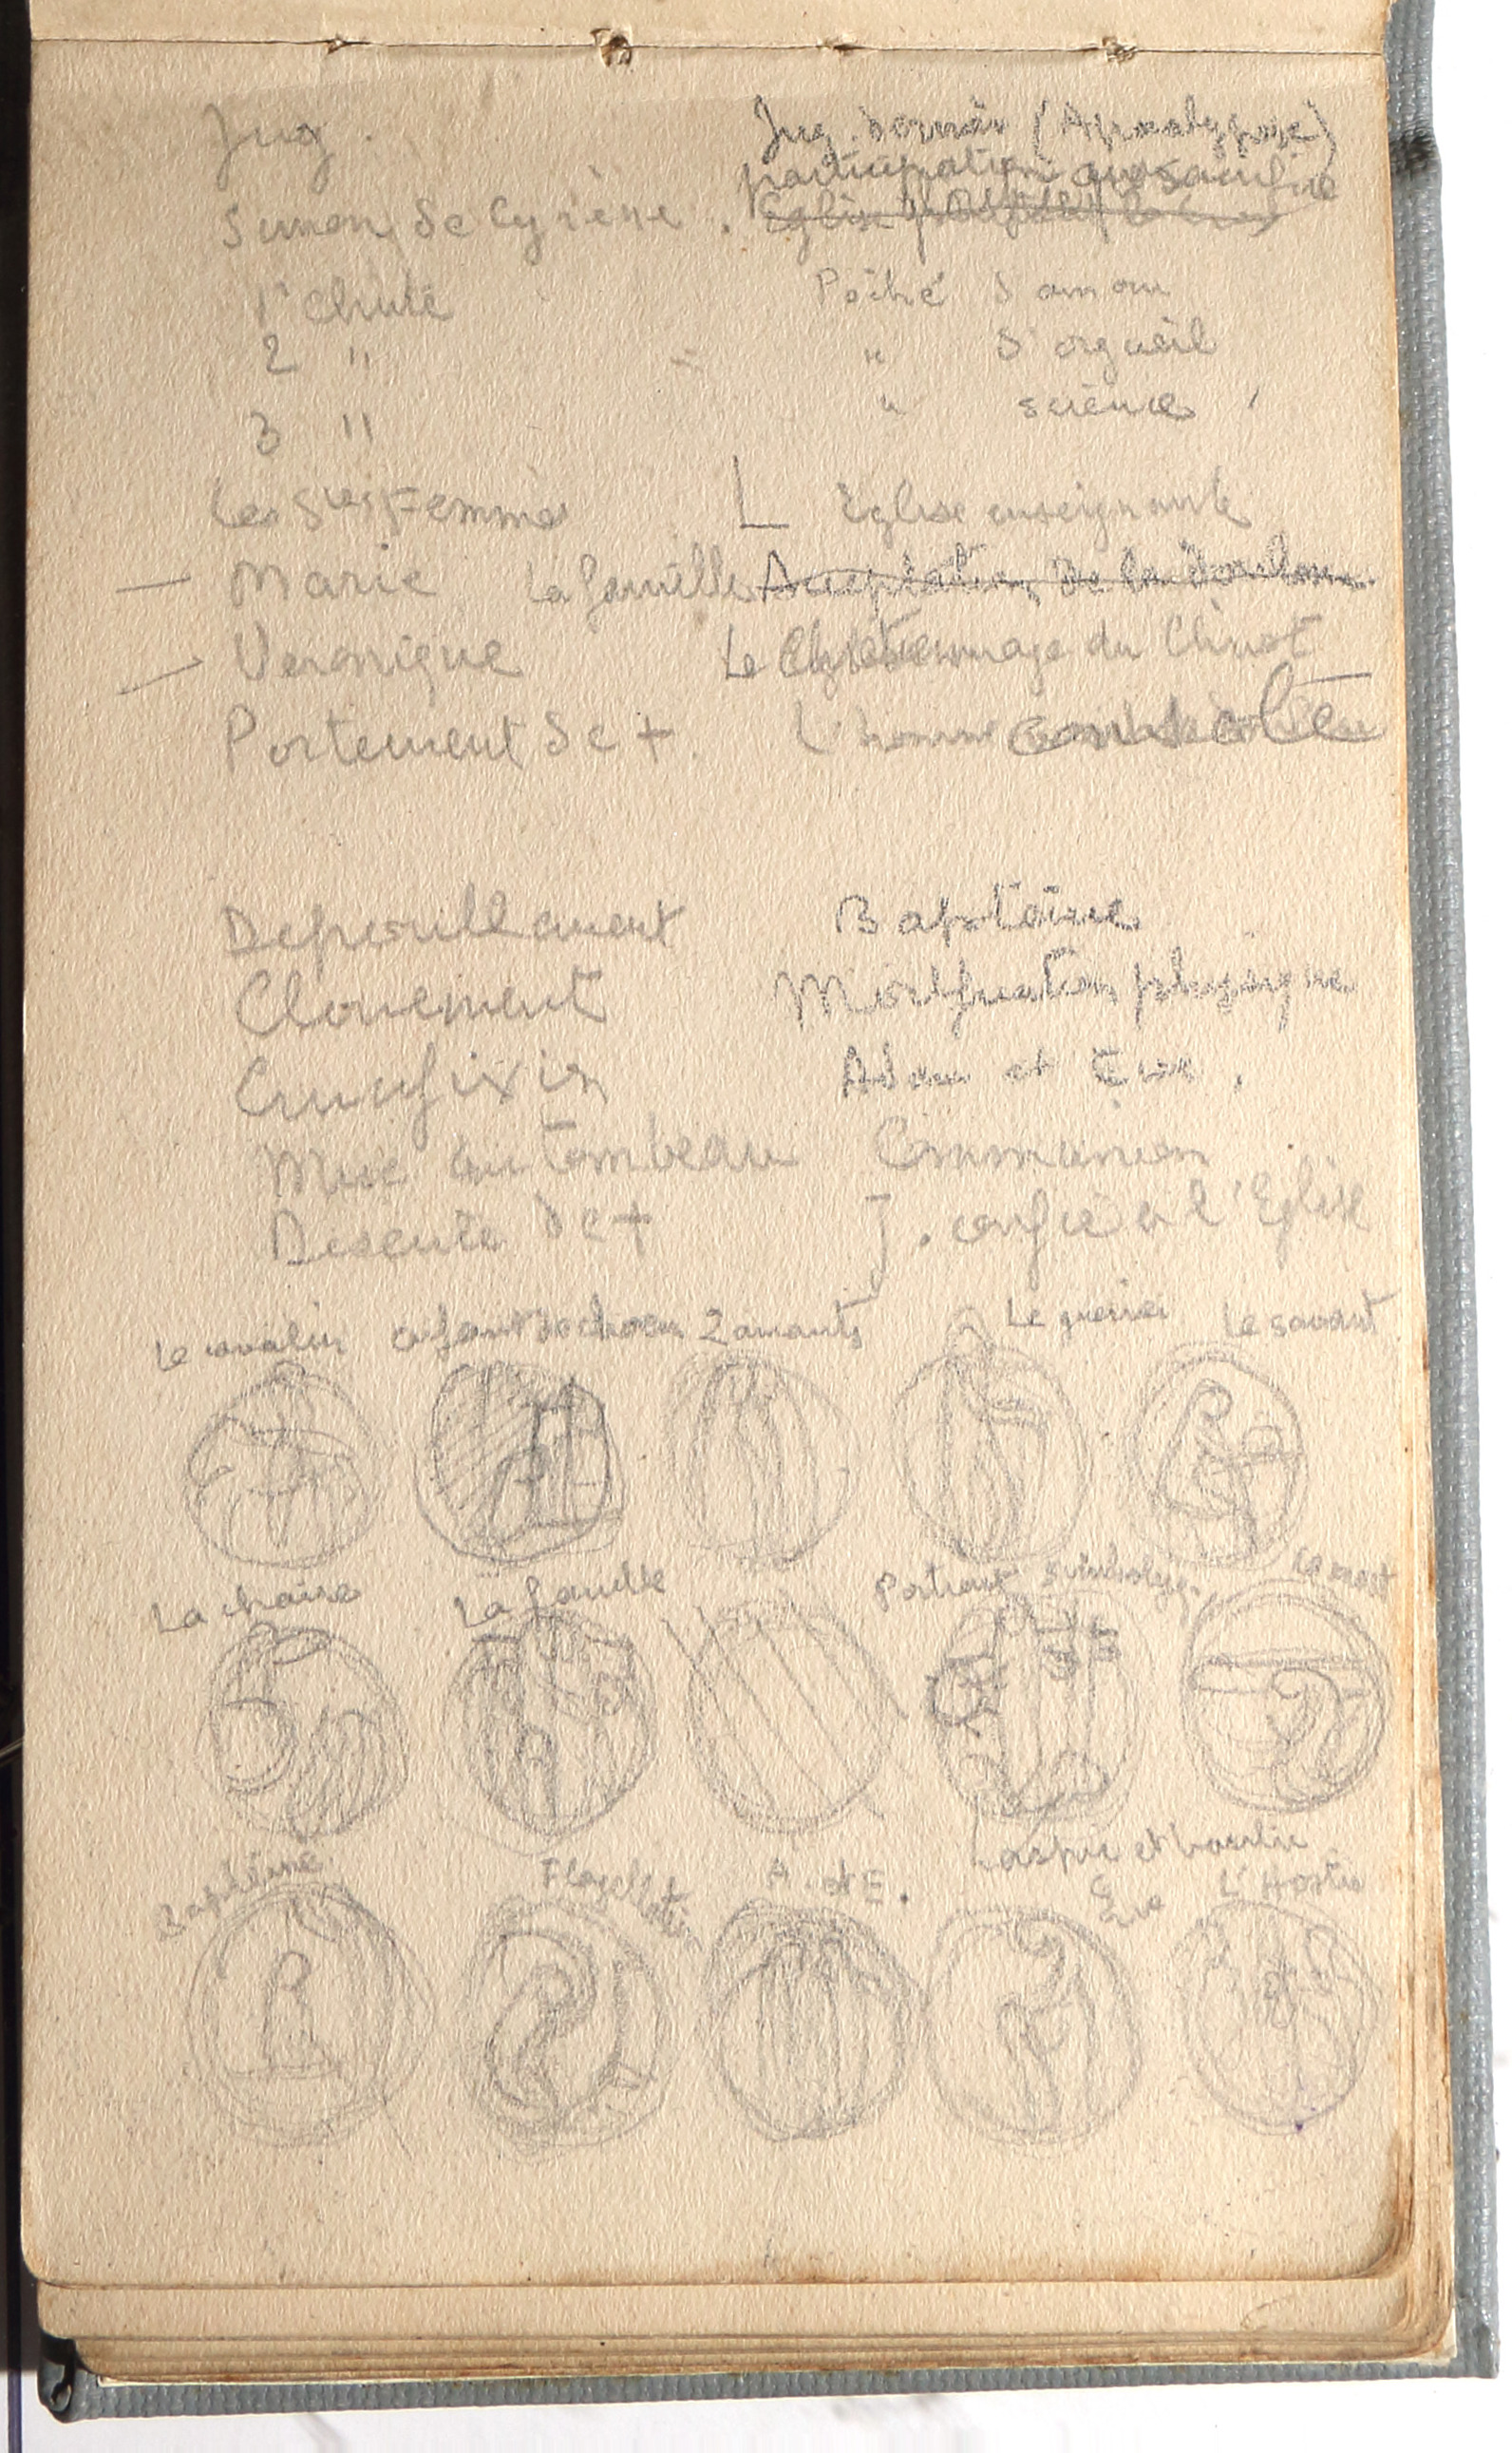 Jug. Jug. dernier (Apocalypse)
participation au sacrifice
Simon de Cyrène. Eglise
1e chute Péché d'amour
2 " " d'orgueil
3 " " science
Les Stes Femmes L'Eglise enseignante
— Marie La famille Acceptation de la douleur
— Veronique Le du Christ
Portement de + L'homme
Depouillement Baptême
Clouement Mortification physique
Crucifixion Adam et Eve.
Mise au tombeau Communion
Descente de + J. confié à l'Eglise
Le cavalier enfant de choeur 2 amants Le guerrier Le savant
La chaire La famille Portrait symbolyq. Le mort
Baptême Flagellation A. et E. L'aspic et basilic
Eve L'Hostie